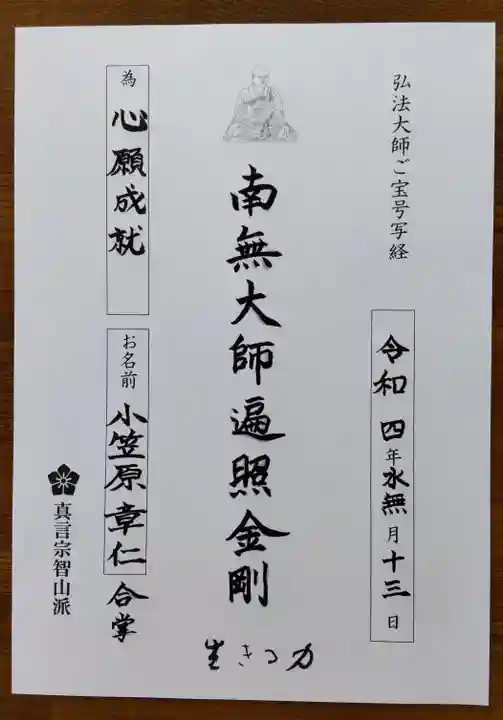 弘法大師ご宝号写経
令和四年水無月十三日
南無大師遍照金剛
生きる力
為 心願成就
お名前 小笠原章仁 合掌
真言宗智山派